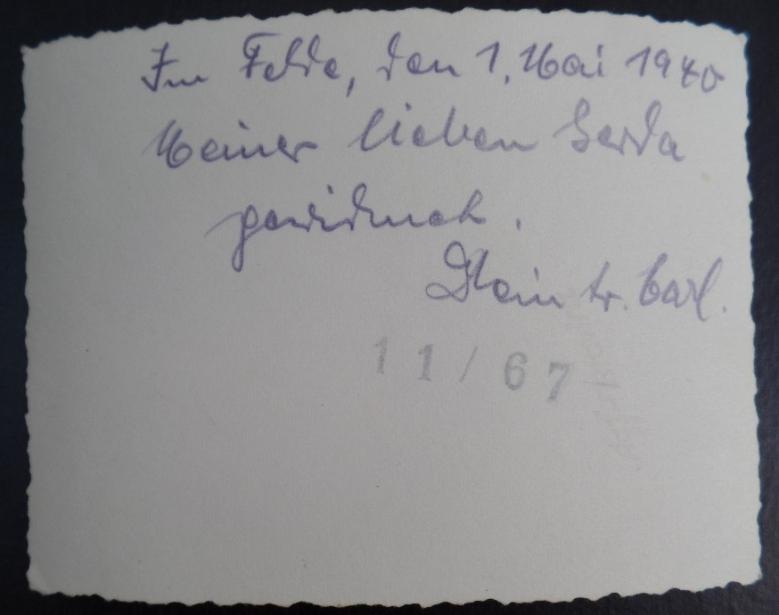 Im Felde, den 1. Mai 1940
Meiner lieben Gerda
gewidmet.
Dein tr. Carl.
11/67